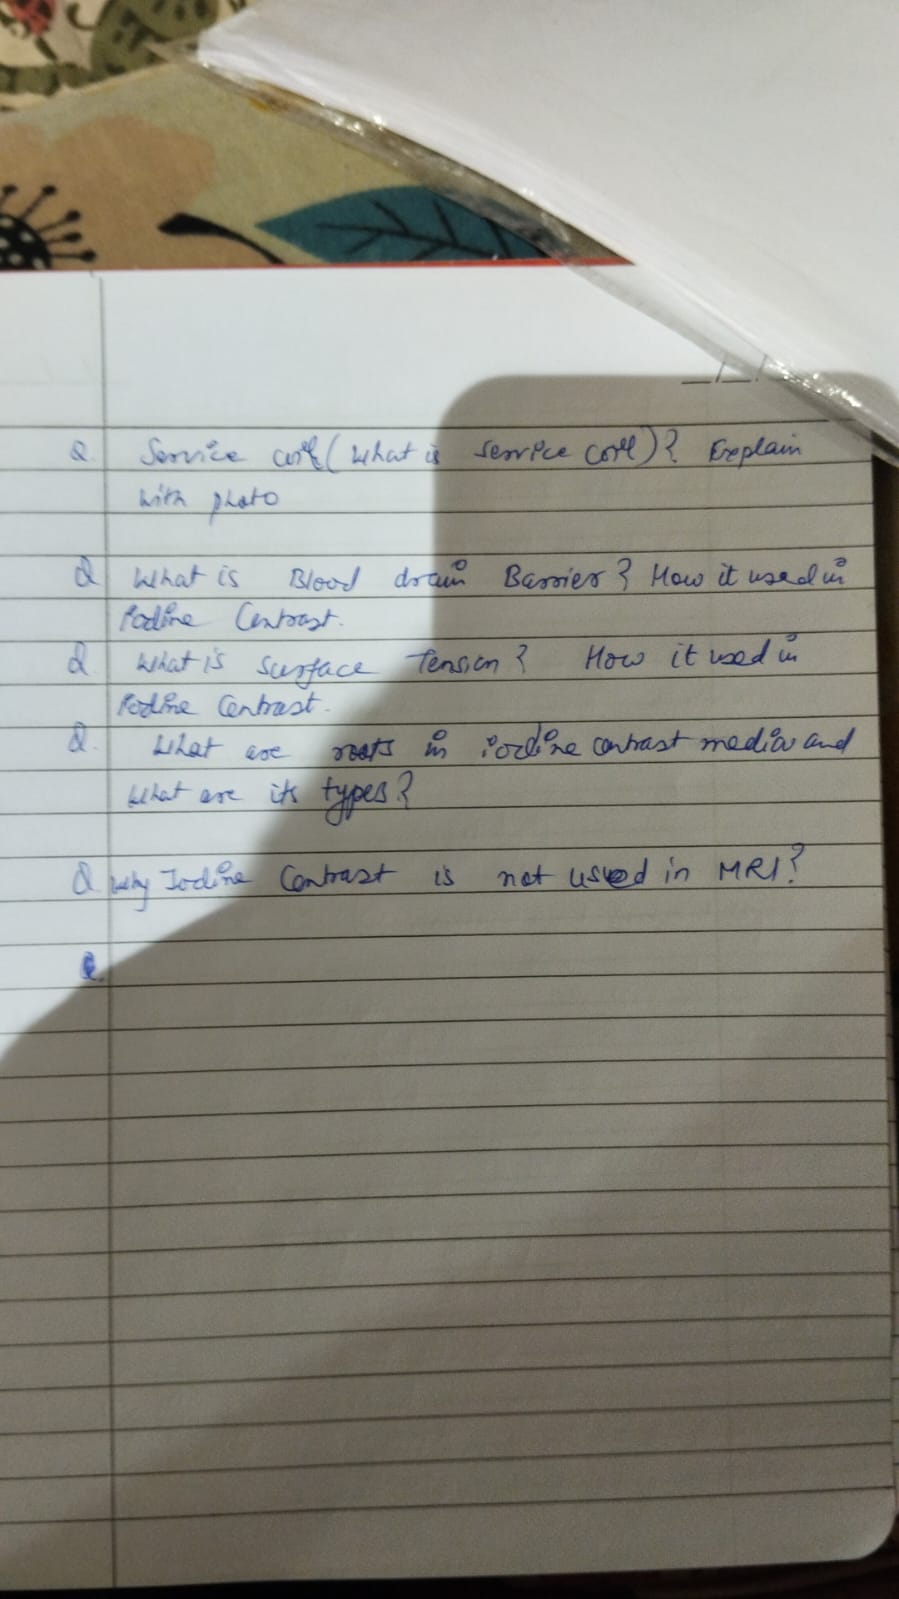 Q. Service coil (what is service coil)? Explain
with photo
Q What is Blood drain Barrier? How it used in
Iodine Contrast.
Q What is surface Tension? How it used in
Iodine Contrast.
Q. What are roots in iodine contrast media and
What are its types?
Q Why Iodine Contrast is not used in MRI?
Q.